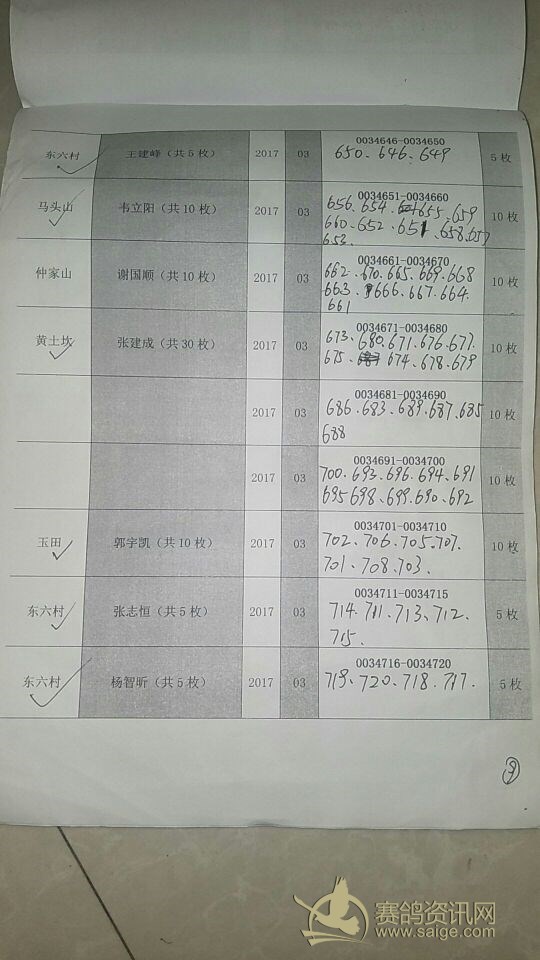 0034646-0034650
东六村 王建峰（共5枚） 2017 03 650、646、649 5枚
0034651-0034660
马头山 韦立阳（共10枚） 2017 03 656、654、655、659 10枚
660、652、651、658、657
653、
0034661-0034670
仲家山 谢国顺（共10枚） 2017 03 662、670、665、669、668 10枚
663、666、667、664、
661
0034671-0034680
黄土坎 张建成（共30枚） 2017 03 673、680、671、676、677、 10枚
675、674、678、679
0034681-0034690
2017 03 686、683、689、687、685 10枚
688
0034691-0034700
2017 03 700、693、696、694、691 10枚
695 698、699、690、692
0034701-0034710
玉田 郭宇凯（共10枚） 2017 03 702、706、705、707、 10枚
701、708、703、
0034711-0034715
东六村 张志恒（共5枚） 2017 03 714、711、713、712、 5枚
715、
0034716-0034720
东六村 杨智昕（共5枚） 2017 03 719、720、718、717、 5枚
⑨
赛鸽资讯网
www.saige.com